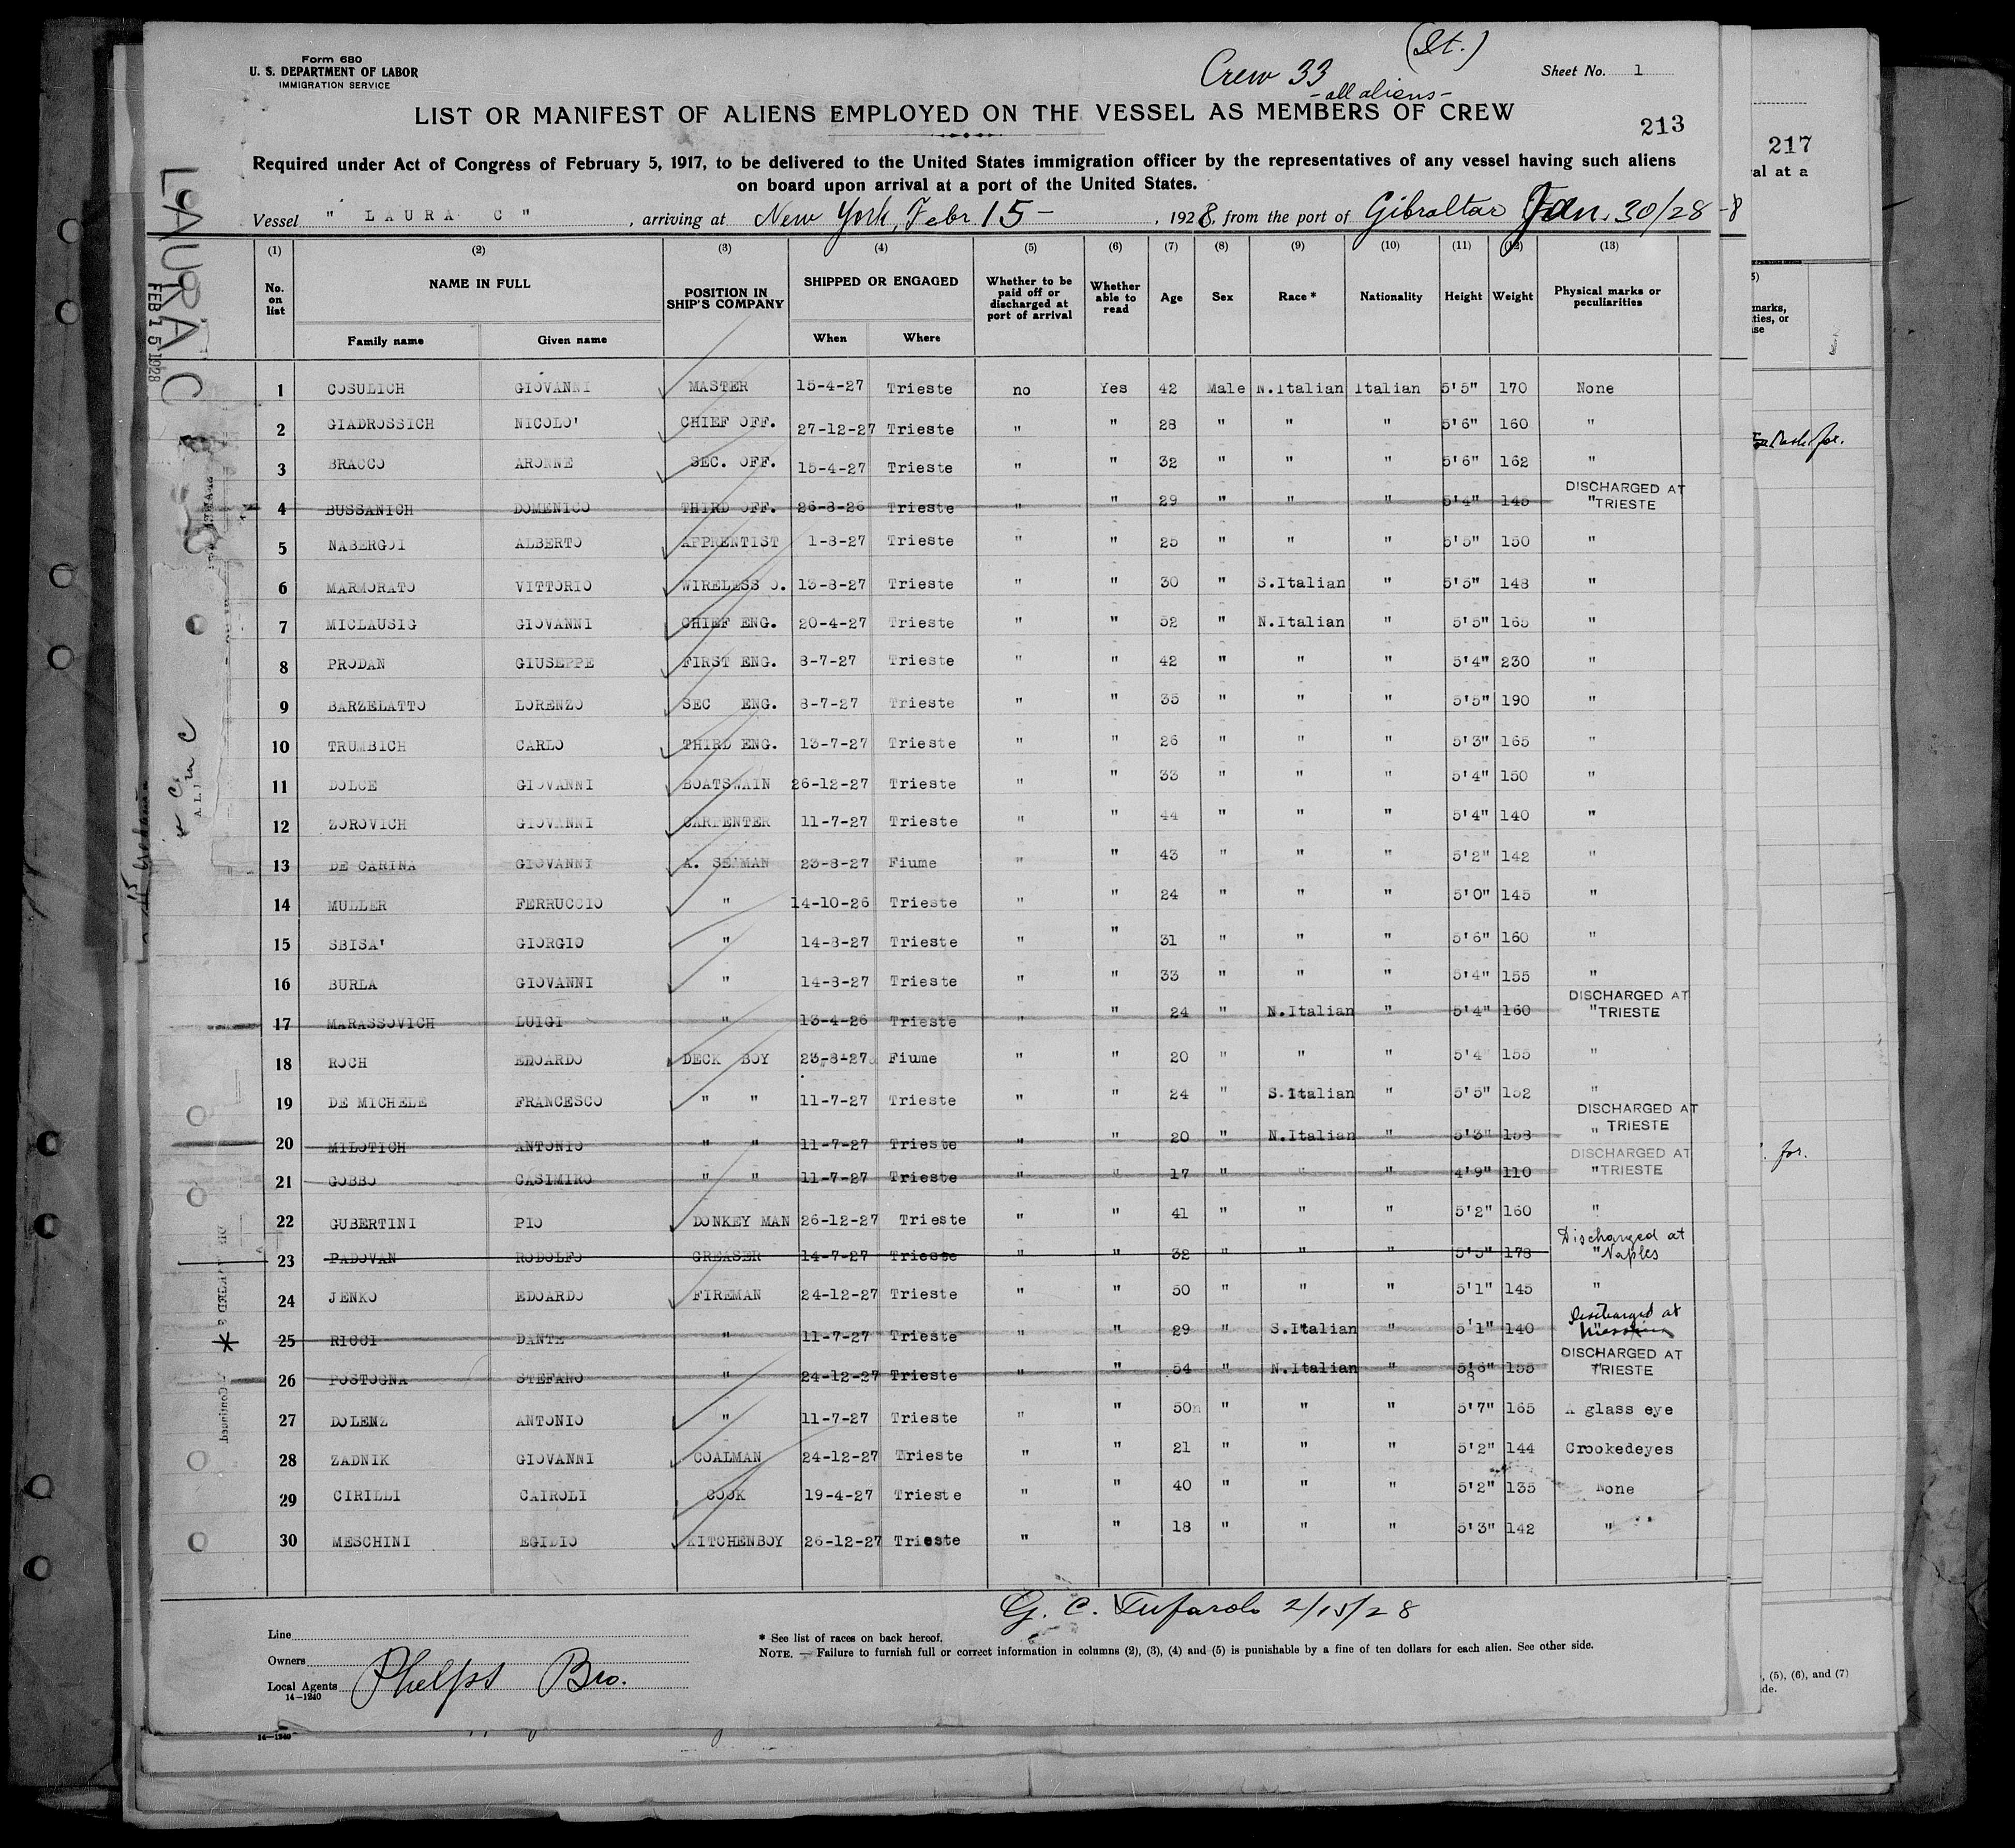 Form 680
U. S. DEPARTMENT OF LABOR
IMMIGRATION SERVICE
(It.)
Crew 33
- all aliens -
Sheet No. 1
LIST OR MANIFEST OF ALIENS EMPLOYED ON THE VESSEL AS MEMBERS OF CREW
213
Required under Act of Congress of February 5, 1917, to be delivered to the United States immigration officer by the representatives of any vessel having such aliens
on board upon arrival at a port of the United States.
Vessel " LAURA C ", arriving at New York, Febr. 15 -, 1928, from the port of Gibraltar Jan. 30/28
(1) (2) (3) (4) (5) (6) (7) (8) (9) (10) (11) (12) (13)
No. on list NAME IN FULL POSITION IN SHIP'S COMPANY SHIPPED OR ENGAGED Whether to be paid off or discharged at port of arrival Whether able to read Age Sex Race * Nationality Height Weight Physical marks or peculiarities
Family name Given name When Where
1 COSULICH GIOVANNI MASTER 15-4-27 Trieste no Yes 42 Male N.Italian Italian 5'5" 170 None
2 GIADROSSICH NICOLO' CHIEF OFF. 27-12-27 Trieste " " 28 " " " 5'6" 160 "
3 BRACCO ARONNE SEC. OFF. 15-4-27 Trieste " " 32 " " " 5'6" 162 "
4 BUSSANICH DOMENICO THIRD OFF. 26-8-26 Trieste " " 29 " " " 5'4" 145 " DISCHARGED AT TRIESTE
5 NABERGOI ALBERTO APPRENTIST 1-8-27 Trieste " " 25 " " " 5'5" 150 "
6 MARMORATO VITTORIO WIRELESS O. 13-8-27 Trieste " " 30 " S.Italian " 5'5" 148 "
7 MICLAUSIG GIOVANNI CHIEF ENG. 20-4-27 Trieste " " 52 " N.Italian " 5'5" 165 "
8 PRODAN GIUSEPPE FIRST ENG. 8-7-27 Trieste " " 42 " " " 5'4" 230 "
9 BARZELATTO LORENZO SEC ENG. 8-7-27 Trieste " " 35 " " " 5'5" 190 "
10 TRUMBICH CARLO THIRD ENG. 13-7-27 Trieste " " 26 " " " 5'3" 165 "
11 DOLCE GIOVANNI BOATSWAIN 26-12-27 Trieste " " 33 " " " 5'4" 150 "
12 ZOROVICH GIOVANNI CARPENTER 11-7-27 Trieste " " 44 " " " 5'4" 140 "
13 DE CARINA GIOVANNI A. SE'MAN 23-8-27 Fiume " " 43 " " " 5'2" 142 "
14 MULLER FERRUCCIO " 14-10-26 Trieste " " 24 " " " 5'0" 145 "
15 SBISA' GIORGIO " 14-8-27 Trieste " " 31 " " " 5'6" 160 "
16 BURLA GIOVANNI " 14-8-27 Trieste " " 33 " " " 5'4" 155 "
17 MARASSOVICH LUIGI " 13-4-26 Trieste " " 24 " N.Italian " 5'4" 160 " DISCHARGED AT TRIESTE
18 ROCH EDOARDO DECK BOY 23-8-27 Fiume " " 20 " " " 5'4 155 "
19 DE MICHELE FRANCESCO " " 11-7-27 Trieste " " 24 " S.Italian " 5'5" 152 "
20 MILOTICH ANTONIO " " 11-7-27 Trieste " " 20 " N.Italian " 5'3" 158 " DISCHARGED AT TRIESTE
21 GOBBO CASIMIRO " " 11-7-27 Trieste " " 17 " " " 4'9" 110 " DISCHARGED AT TRIESTE
22 GUBERTINI PIO DONKEY MAN 26-12-27 Trieste " " 41 " " " 5'2" 160 "
23 PADOVAN RODOLFO GREASER 14-7-27 Trieste " " 32 " " " 5'5" 178 " Discharged at Naples
24 JENKO EDOARDO FIREMAN 24-12-27 Trieste " " 50 " " " 5'1" 145 "
25 RICCI DANTE " 11-7-27 Trieste " " 29 " S.Italian " 5'1" 140 " Discharged at Messina
26 POSTOGNA STEFANO " 24-12-27 Trieste " " 54 " N.Italian " 5'6" 155 " DISCHARGED AT TRIESTE
27 DOLENZ ANTONIO " 11-7-27 Trieste " " 50 " " " 5'7" 165 A glass eye
28 ZADNIK GIOVANNI COALMAN 24-12-27 Trieste " " 21 " " " 5'2" 144 Crookedeyes
29 CIRILLI CAIROLI COOK 19-4-27 Trieste " " 40 " " " 5'2" 135 None
30 MESCHINI EGIDIO KITCHENBOY 26-12-27 Trieste " " 18 " " " 5'3" 142 "
G. C. Tufarolo 2/15/28
Line
Owners
Local Agents Phelps Bro.
14-1240
* See list of races on back hereof.
NOTE. — Failure to furnish full or correct information in columns (2), (3), (4) and (5) is punishable by a fine of ten dollars for each alien. See other side.
LAURA C
FEB 15 1928
217
val at a
marks,
ties, or
se
for.
, (5), (6), and (7)
de.
14-1240
Continued